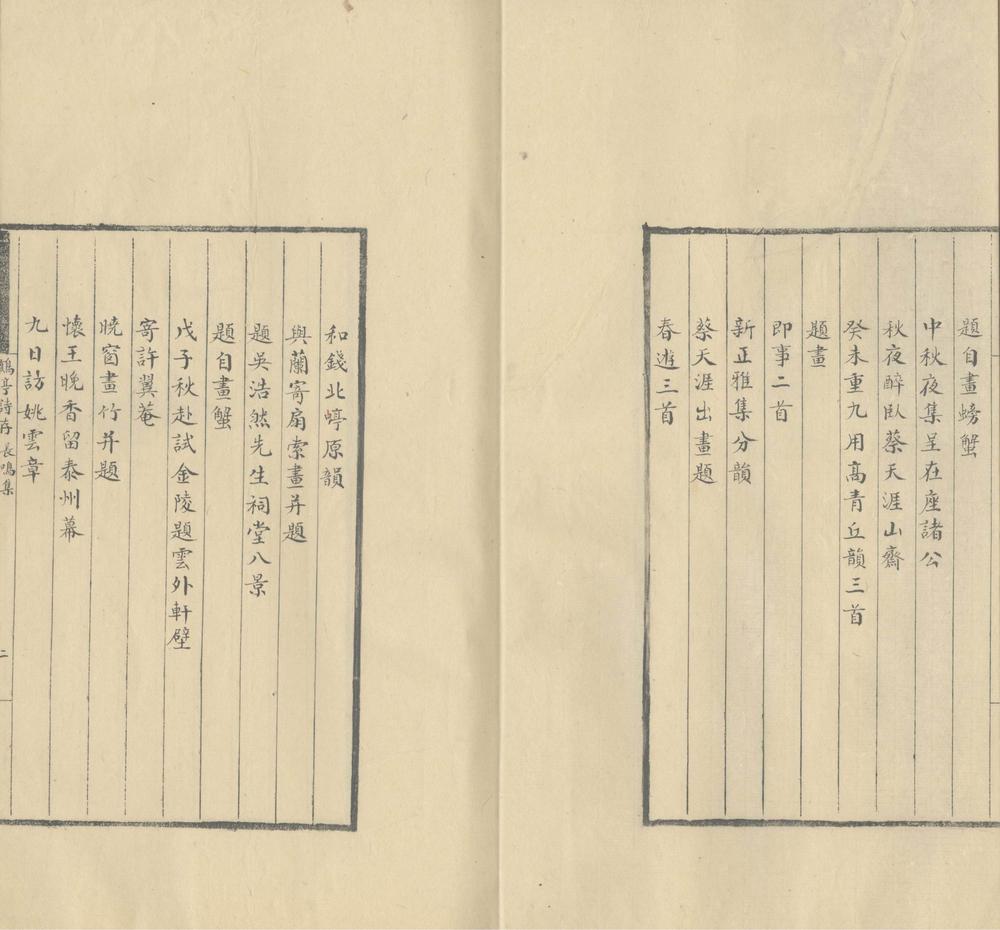 題自畫螃蟹
中秋夜集呈在座諸公
秋夜醉臥蔡天涯山齋
癸未重九用高青丘韻三首
題畫
即事二首
新正雅集分韻
蔡天涯出畫題
春遊三首
和錢北㟃原韻
與蘭寄扇索畫并題
題吳浩然先生祠堂八景
題自畫蟹
戊子秋赴試金陵題雲外軒壁
寄許翼菴
曉窗畫竹并題
懷王晚香留泰州幕
九日訪姚雲章
亭詩存 長鳴集
二